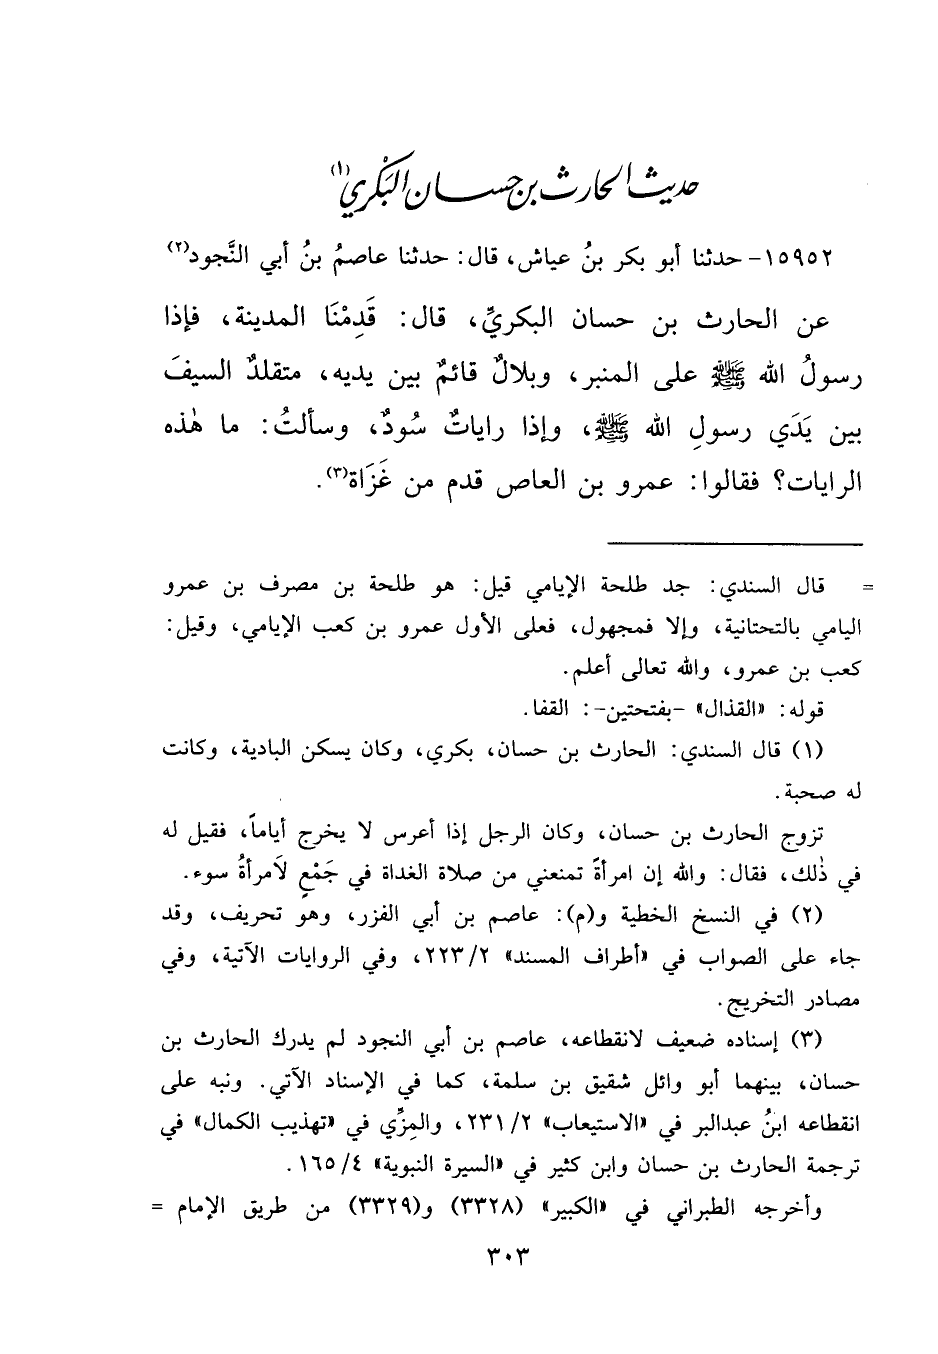 حديث الحارث بن حسان البَكْري(١)
١٥٩٥٢- حدثنا أبو بكر بنُ عياش، قال: حدثنا عاصمُ بنُ أبي النَّجود(٢)
عن الحارث بن حسان البكريِّ، قال: قَدِمْنَا المدينة، فإذا
رسولُ الله ﷺ على المنبر، وبلالٌ قائمٌ بين يديه، متقلدٌ السيفَ
بين يَدَي رسولِ الله ﷺ، وإذا راياتٌ سُودٌ، وسألتُ: ما هٰذه
الرايات؟ فقالوا: عمرو بن العاص قدم من غَزَاة(٣).
= قال السندي: جد طلحة الإيامي قيل: هو طلحة بن مصرف بن عمرو
اليامي بالتحتانية، وإلا فمجهول، فعلى الأول عمرو بن كعب الإيامي، وقيل:
كعب بن عمرو، والله تعالى أعلم.
قوله: «القذال» -بفتحتين-: القفا.
(١) قال السندي: الحارث بن حسان، بكري، وكان يسكن البادية، وكانت
له صحبة.
تزوج الحارث بن حسان، وكان الرجل إذا أعرس لا يخرج أياماً، فقيل له
في ذٰلك، فقال: والله إن امرأةً تمنعني من صلاة الغداة في جَمْعٍ لَامرأةُ سوء.
(٢) في النسخ الخطية و(م): عاصم بن أبي الفزر، وهو تحريف، وقد
جاء على الصواب في «أطراف المسند» ٢٢٣/٢، وفي الروايات الآتية، وفي
مصادر التخريج.
(٣) إسناده ضعيف لانقطاعه، عاصم بن أبي النجود لم يدرك الحارث بن
حسان، بينهما أبو وائل شقيق بن سلمة، كما في الإسناد الآتي. ونبه على
انقطاعه ابنُ عبدالبر في «الاستيعاب» ٢٣١/٢، والمِزِّي في «تهذيب الكمال» في
ترجمة الحارث بن حسان وابن كثير في «السيرة النبوية» ١٦٥/٤.
وأخرجه الطبراني في «الكبير» (٣٣٢٨) و(٣٣٢٩) من طريق الإمام =
٣٠٣